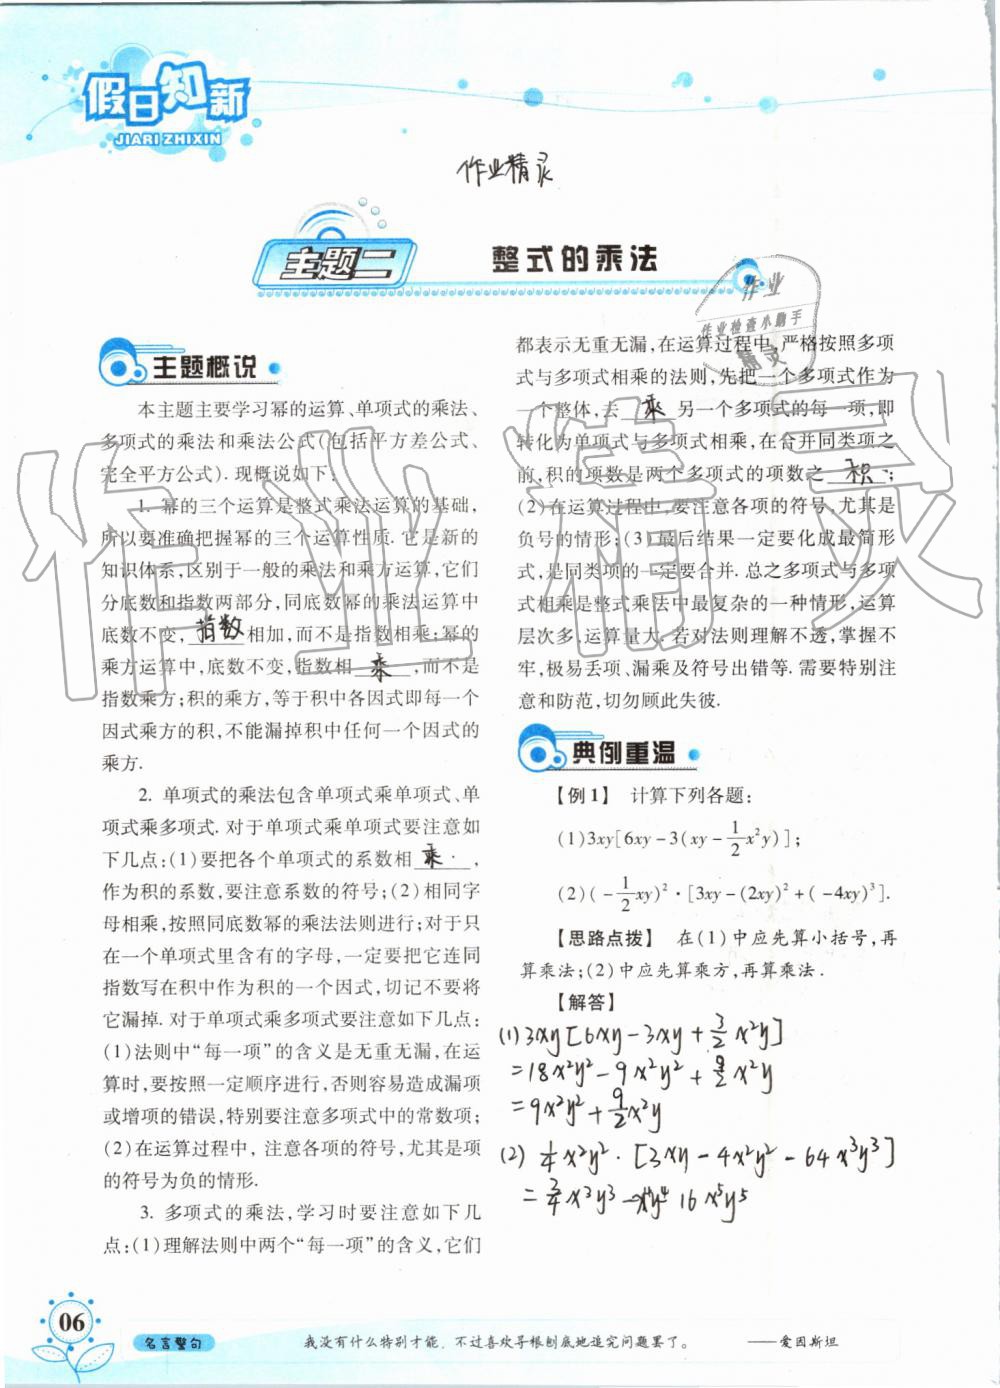 假日知新
JIARI ZHIXIN
作业精灵
主题二 整式的乘法
作业
作业检查小助手
精灵
主题概说
本主题主要学习幂的运算、单项式的乘法、
多项式的乘法和乘法公式(包括平方差公式、
完全平方公式). 现概说如下:
1. 幂的三个运算是整式乘法运算的基础,
所以要准确把握幂的三个运算性质. 它是新的
知识体系,区别于一般的乘法和乘方运算,它们
分底数和指数两部分,同底数幂的乘法运算中
底数不变, 指数 相加,而不是指数相乘;幂的
乘方运算中,底数不变,指数相 乘 ,而不是
指数乘方;积的乘方,等于积中各因式即每一个
因式乘方的积,不能漏掉积中任何一个因式的
乘方.
2. 单项式的乘法包含单项式乘单项式、单
项式乘多项式. 对于单项式乘单项式要注意如
下几点:(1)要把各个单项式的系数相 乘 ,
作为积的系数,要注意系数的符号;(2)相同字
母相乘,按照同底数幂的乘法法则进行;对于只
在一个单项式里含有的字母,一定要把它连同
指数写在积中作为积的一个因式,切记不要将
它漏掉. 对于单项式乘多项式要注意如下几点:
(1)法则中“每一项”的含义是无重无漏,在运
算时,要按照一定顺序进行,否则容易造成漏项
或增项的错误,特别要注意多项式中的常数项;
(2)在运算过程中, 注意各项的符号,尤其是项
的符号为负的情形.
3. 多项式的乘法,学习时要注意如下几
点:(1)理解法则中两个“每一项”的含义,它们
都表示无重无漏,在运算过程中,严格按照多项
式与多项式相乘的法则,先把一个多项式作为
一个整体,去 乘 另一个多项式的每一项,即
转化为单项式与多项式相乘,在合并同类项之
前,积的项数是两个多项式的项数之 积 ;
(2)在运算过程中,要注意各项的符号,尤其是
负号的情形;(3)最后结果一定要化成最简形
式,是同类项的一定要合并. 总之多项式与多项
式相乘是整式乘法中最复杂的一种情形,运算
层次多,运算量大. 若对法则理解不透,掌握不
牢,极易丢项、漏乘及符号出错等. 需要特别注
意和防范,切勿顾此失彼.
典例重温
【例1】 计算下列各题:
(1)3xy[6xy-3(xy-1/2x²y)];
(2)(-1/2xy)²·[3xy-(2xy)²+(-4xy)³].
【思路点拨】 在(1)中应先算小括号,再
算乘法;(2)中应先算乘方,再算乘法.
【解答】
(1)3xy[6xy-3xy+3/2x²y]
=18x²y²-9x²y²+9/2x²y
=9x²y²+9/2x²y
(2) 1/4x²y²·[3xy-4x²y²-64x³y³]
=3/4x³y³-x⁴y⁴ 16x⁵y⁵
06
名言警句
我没有什么特别才能，不过喜欢寻根刨底地追究问题罢了。 ——爱因斯坦
作业精灵